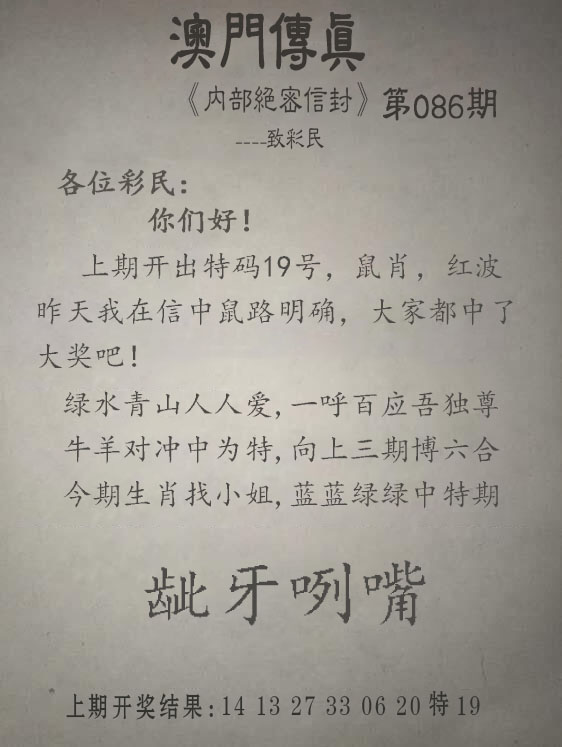 澳門傳眞
《内部絕密信封》第086期
----致彩民
各位彩民：
你们好！
上期开出特码19号，鼠肖，红波
昨天我在信中鼠路明确，大家都中了
大奖吧！
绿水青山人人爱,一呼百应吾独尊
牛羊对冲中为特,向上三期博六合
今期生肖找小姐,蓝蓝绿绿中特期
龇牙咧嘴
上期开奖结果:14 13 27 33 06 20 特 19